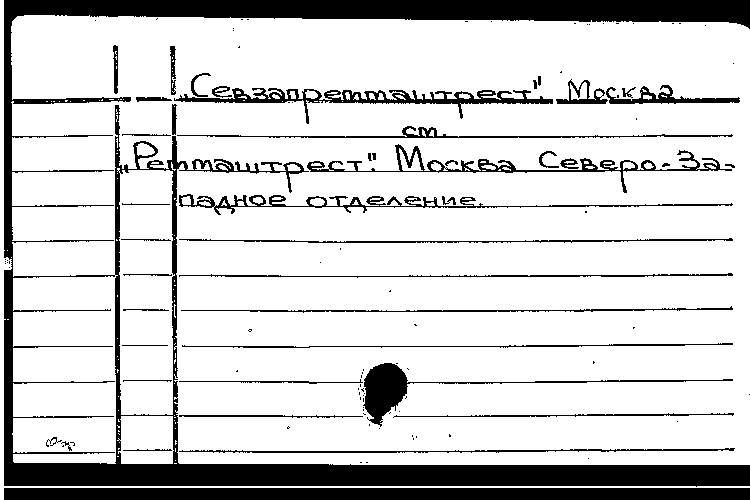 „Севзапремташтрест". Москва.
ст.
„Ремташтрест". Москва Северо-За-
падное отделение.